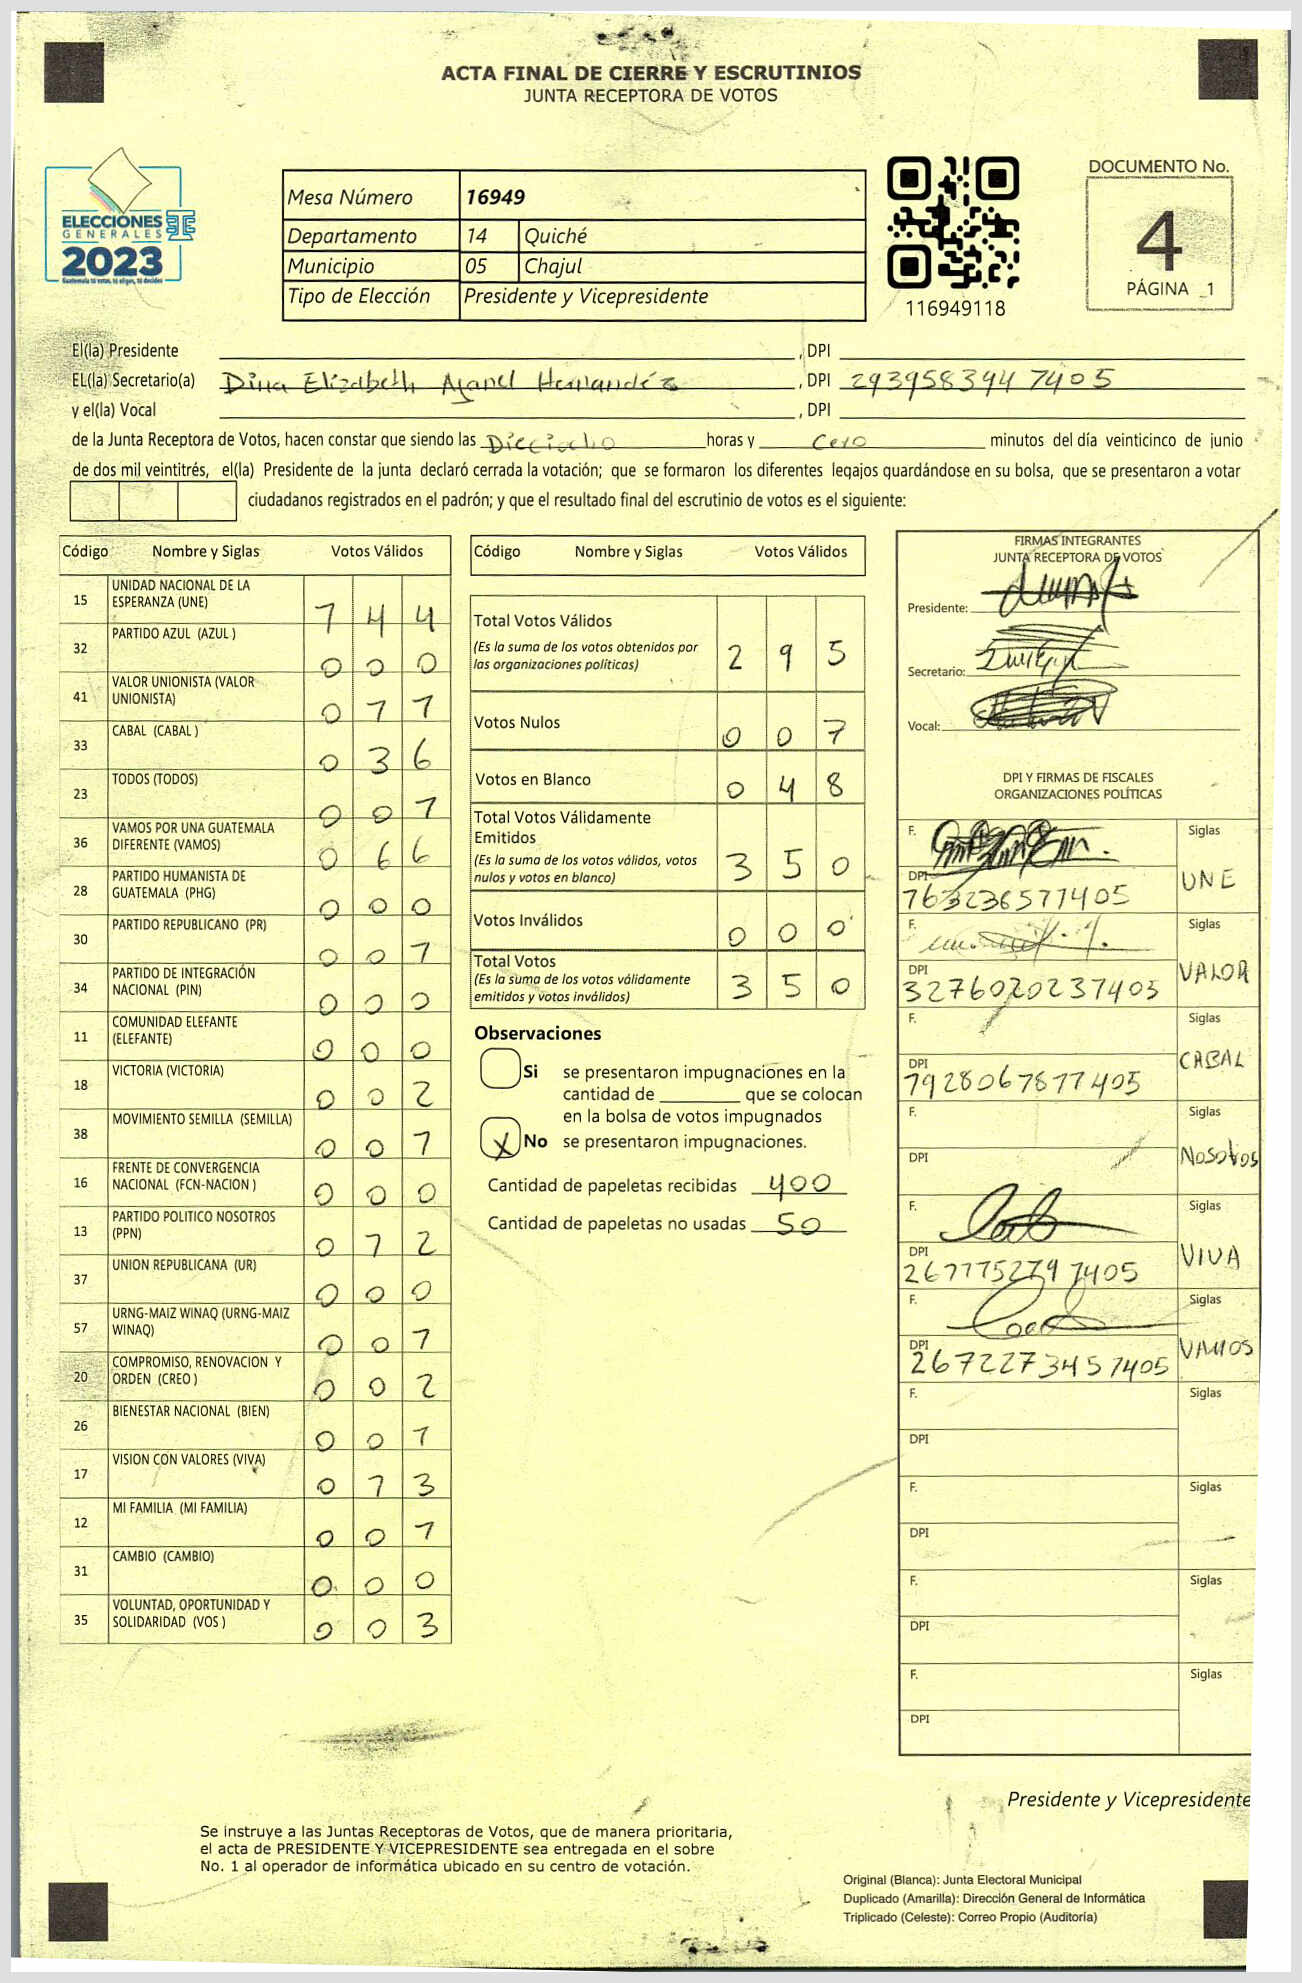 ACTA FINAL DE CIERRE Y ESCRUTINIOS
JUNTA RECEPTORA DE VOTOS
ELECCIONES
GENERALES
2023
Guatemala tú votas, tú eliges, tú decides
Mesa Número 16949
Departamento 14 Quiché
Municipio 05 Chajul
Tipo de Elección Presidente y Vicepresidente
116949118
DOCUMENTO No.
4
PÁGINA 1
El(la) Presidente , DPI
EL(la) Secretario(a) Dina Elizabeth Hernandéz , DPI 293958394 1405
y el(la) Vocal , DPI
de la Junta Receptora de Votos, hacen constar que siendo las Dieciocho horas y Cero minutos del día veinticinco de junio
de dos mil veintitrés, el(la) Presidente de la junta declaró cerrada la votación; que se formaron los diferentes legajos guardándose en su bolsa, que se presentaron a votar
ciudadanos registrados en el padrón; y que el resultado final del escrutinio de votos es el siguiente:
Código Nombre y Siglas Votos Válidos
15 UNIDAD NACIONAL DE LA
ESPERANZA (UNE) 1 4 4
32 PARTIDO AZUL (AZUL ) 0 0 0
41 VALOR UNIONISTA (VALOR
UNIONISTA) 0 1 1
33 CABAL (CABAL ) 0 3 6
23 TODOS (TODOS) 0 0 1
36 VAMOS POR UNA GUATEMALA
DIFERENTE (VAMOS) 0 6 6
28 PARTIDO HUMANISTA DE
GUATEMALA (PHG) 0 0 0
30 PARTIDO REPUBLICANO (PR) 0 0 1
34 PARTIDO DE INTEGRACIÓN
NACIONAL (PIN) 0 0 0
11 COMUNIDAD ELEFANTE
(ELEFANTE) 0 0 0
18 VICTORIA (VICTORIA) 0 0 2
38 MOVIMIENTO SEMILLA (SEMILLA) 0 0 1
16 FRENTE DE CONVERGENCIA
NACIONAL (FCN-NACION ) 0 0 0
13 PARTIDO POLITICO NOSOTROS
(PPN) 0 1 2
37 UNION REPUBLICANA (UR) 0 0 0
57 URNG-MAIZ WINAQ (URNG-MAIZ
WINAQ) 0 0 1
20 COMPROMISO, RENOVACION Y
ORDEN (CREO ) 0 0 2
26 BIENESTAR NACIONAL (BIEN) 0 0 1
17 VISION CON VALORES (VIVA) 0 1 3
12 MI FAMILIA (MI FAMILIA) 0 0 1
31 CAMBIO (CAMBIO) 0 0 0
35 VOLUNTAD, OPORTUNIDAD Y
SOLIDARIDAD (VOS ) 0 0 3
Código Nombre y Siglas Votos Válidos
Total Votos Válidos
(Es la suma de los votos obtenidos por
las organizaciones políticas) 2 9 5
Votos Nulos 0 0 7
Votos en Blanco 0 4 8
Total Votos Válidamente
Emitidos
(Es la suma de los votos válidos, votos
nulos y votos en blanco) 3 5 0
Votos Inválidos 0 0 0
Total Votos
(Es la suma de los votos válidamente
emitidos y votos inválidos) 3 5 0
Observaciones
Si se presentaron impugnaciones en la
cantidad de ________ que se colocan
en la bolsa de votos impugnados
X No se presentaron impugnaciones.
Cantidad de papeletas recibidas 400
Cantidad de papeletas no usadas 50
FIRMAS INTEGRANTES
JUNTA RECEPTORA DE VOTOS
Presidente:
Secretario:
Vocal:
DPI Y FIRMAS DE FISCALES
ORGANIZACIONES POLÍTICAS
F. Siglas
DPI UNE
F. Siglas
DPI VALOR
3216020231405
F. Siglas
DPI CABAL
1928067871405
F. Siglas
DPI NOSOtros
F. Siglas
DPI VIVA
F. Siglas
DPI VAMOS
F. Siglas
DPI
F. Siglas
DPI
F. Siglas
DPI
F. Siglas
DPI
Presidente y Vicepresidente
Se instruye a las Juntas Receptoras de Votos, que de manera prioritaria,
el acta de PRESIDENTE Y VICEPRESIDENTE sea entregada en el sobre
No. 1 al operador de informática ubicado en su centro de votación.
Original (Blanca): Junta Electoral Municipal
Duplicado (Amarilla): Dirección General de Informática
Triplicado (Celeste): Correo Propio (Auditoría)